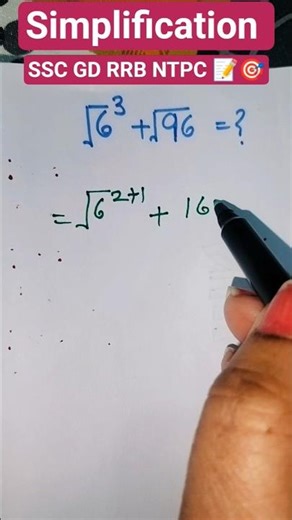 Simplification
SSC GD RRB NTPC 📝🎯
√6³ + √96 = ?
= √6²⁺¹ + 16